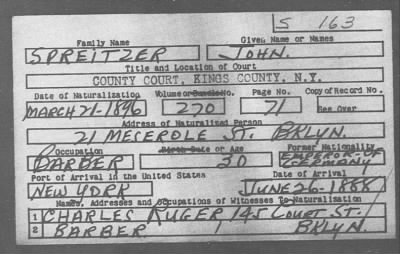 S 163
Family Name Given Name or Names
SPREITZER JOHN.
Title and Location of Court
COUNTY COURT, KINGS COUNTY, N.Y.
Date of Naturalization Volume or Bundle No. Page No. Copy of Record No.
MARCH 21-1896 270 71 See Over
Address of Naturalized Person
21 MESEROLE ST. BKLYN.
Occupation Birth Date or Age Former Nationality
BARBER 30 EMPEROR OF GERMANY
Port of Arrival in the United States Date of Arrival
NEW YORK JUNE 26-1888
Names, Addresses and Occupations of Witnesses To Naturalization
1 CHARLES RUGER 145 COURT ST.
2 BARBER BKLYN.